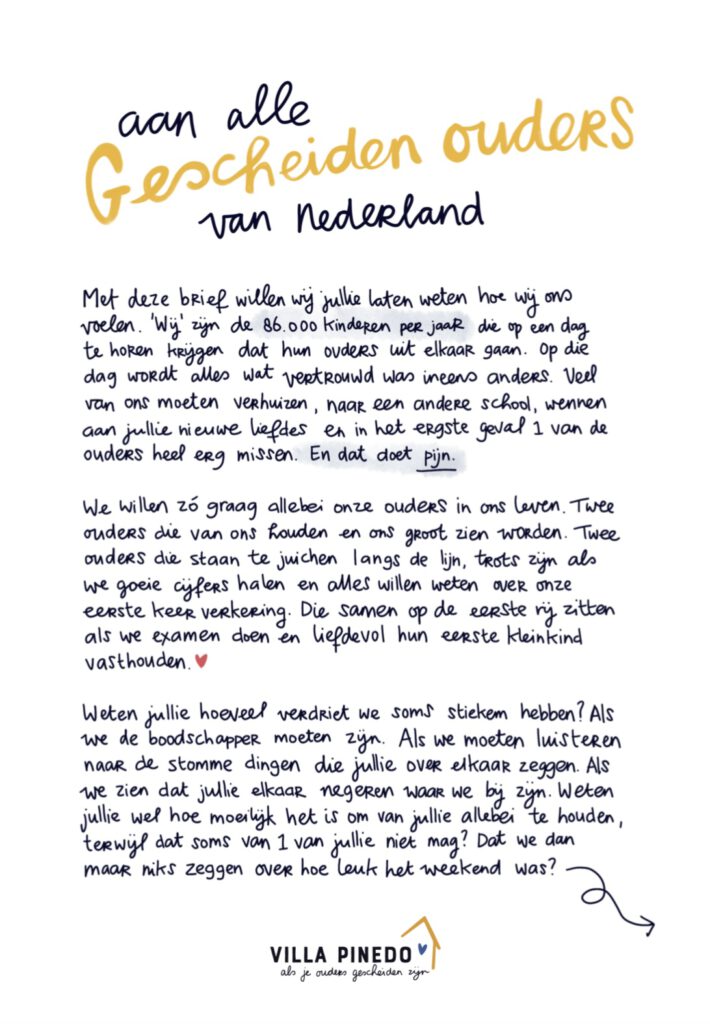 aan alle
Gescheiden ouders
van Nederland
Met deze brief willen wij jullie laten weten hoe wij ons
voelen. 'Wij' zijn de 86.000 kinderen per jaar die op een dag
te horen krijgen dat hun ouders uit elkaar gaan. Op die
dag wordt alles wat vertrouwd was ineens anders. Veel
van ons moeten verhuizen, naar een andere school, wennen
aan jullie nieuwe liefdes en in het ergste geval 1 van de
ouders heel erg missen. En dat doet pijn.
We willen zó graag allebei onze ouders in ons leven. Twee
ouders die van ons houden en ons groot zien worden. Twee
ouders die staan te juichen langs de lijn, trots zijn als
we goeie cijfers halen en alles willen weten over onze
eerste keer verkering. Die samen op de eerste rij zitten
als we examen doen en liefdevol hun eerste kleinkind
vasthouden.
Weten jullie hoeveel verdriet we soms stiekem hebben? Als
we de boodschapper moeten zijn. Als we moeten luisteren
naar de stomme dingen die jullie over elkaar zeggen. Als
we zien dat jullie elkaar negeren waar we bij zijn. Weten
jullie wel hoe moeilijk het is om van jullie allebei te houden,
terwijl dat soms van 1 van jullie niet mag? Dat we dan
maar niks zeggen over hoe leuk het weekend was?
VILLA PINEDO
als je ouders gescheiden zijn